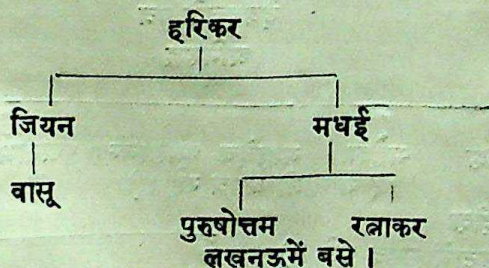 हरिकर
जियन मधई
वासू
पुरुषोत्तम रत्नाकर
लखनऊमें बसे ।